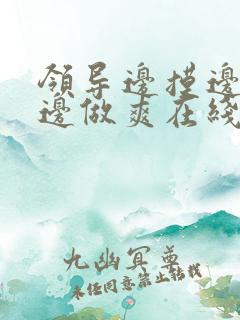 領导邊摸邊
邊做爽在綫
九幽冥尊
未经同意禁止转载